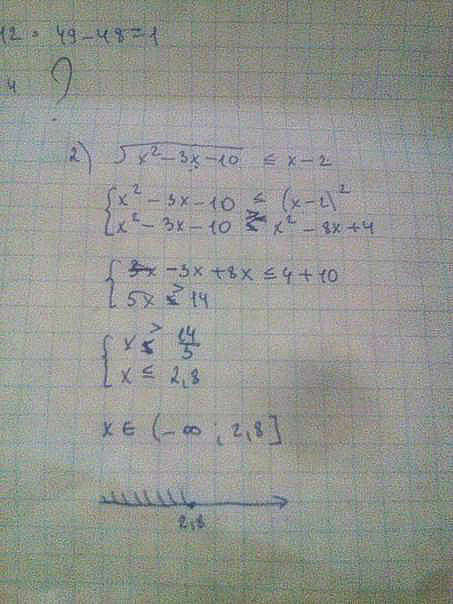 12 = 49-48=1
4
2) √x²-3x-10 ≤ x-2
{ x² - 3x - 10 ≤ (x-2)²
x² - 3x - 10 ≤ x² - 8x + 4
{ -3x + 8x ≤ 4 + 10
5x > 14
{ x > 14/5
x ≤ 2,8
x ∈ (-∞ ; 2,8]
2,8